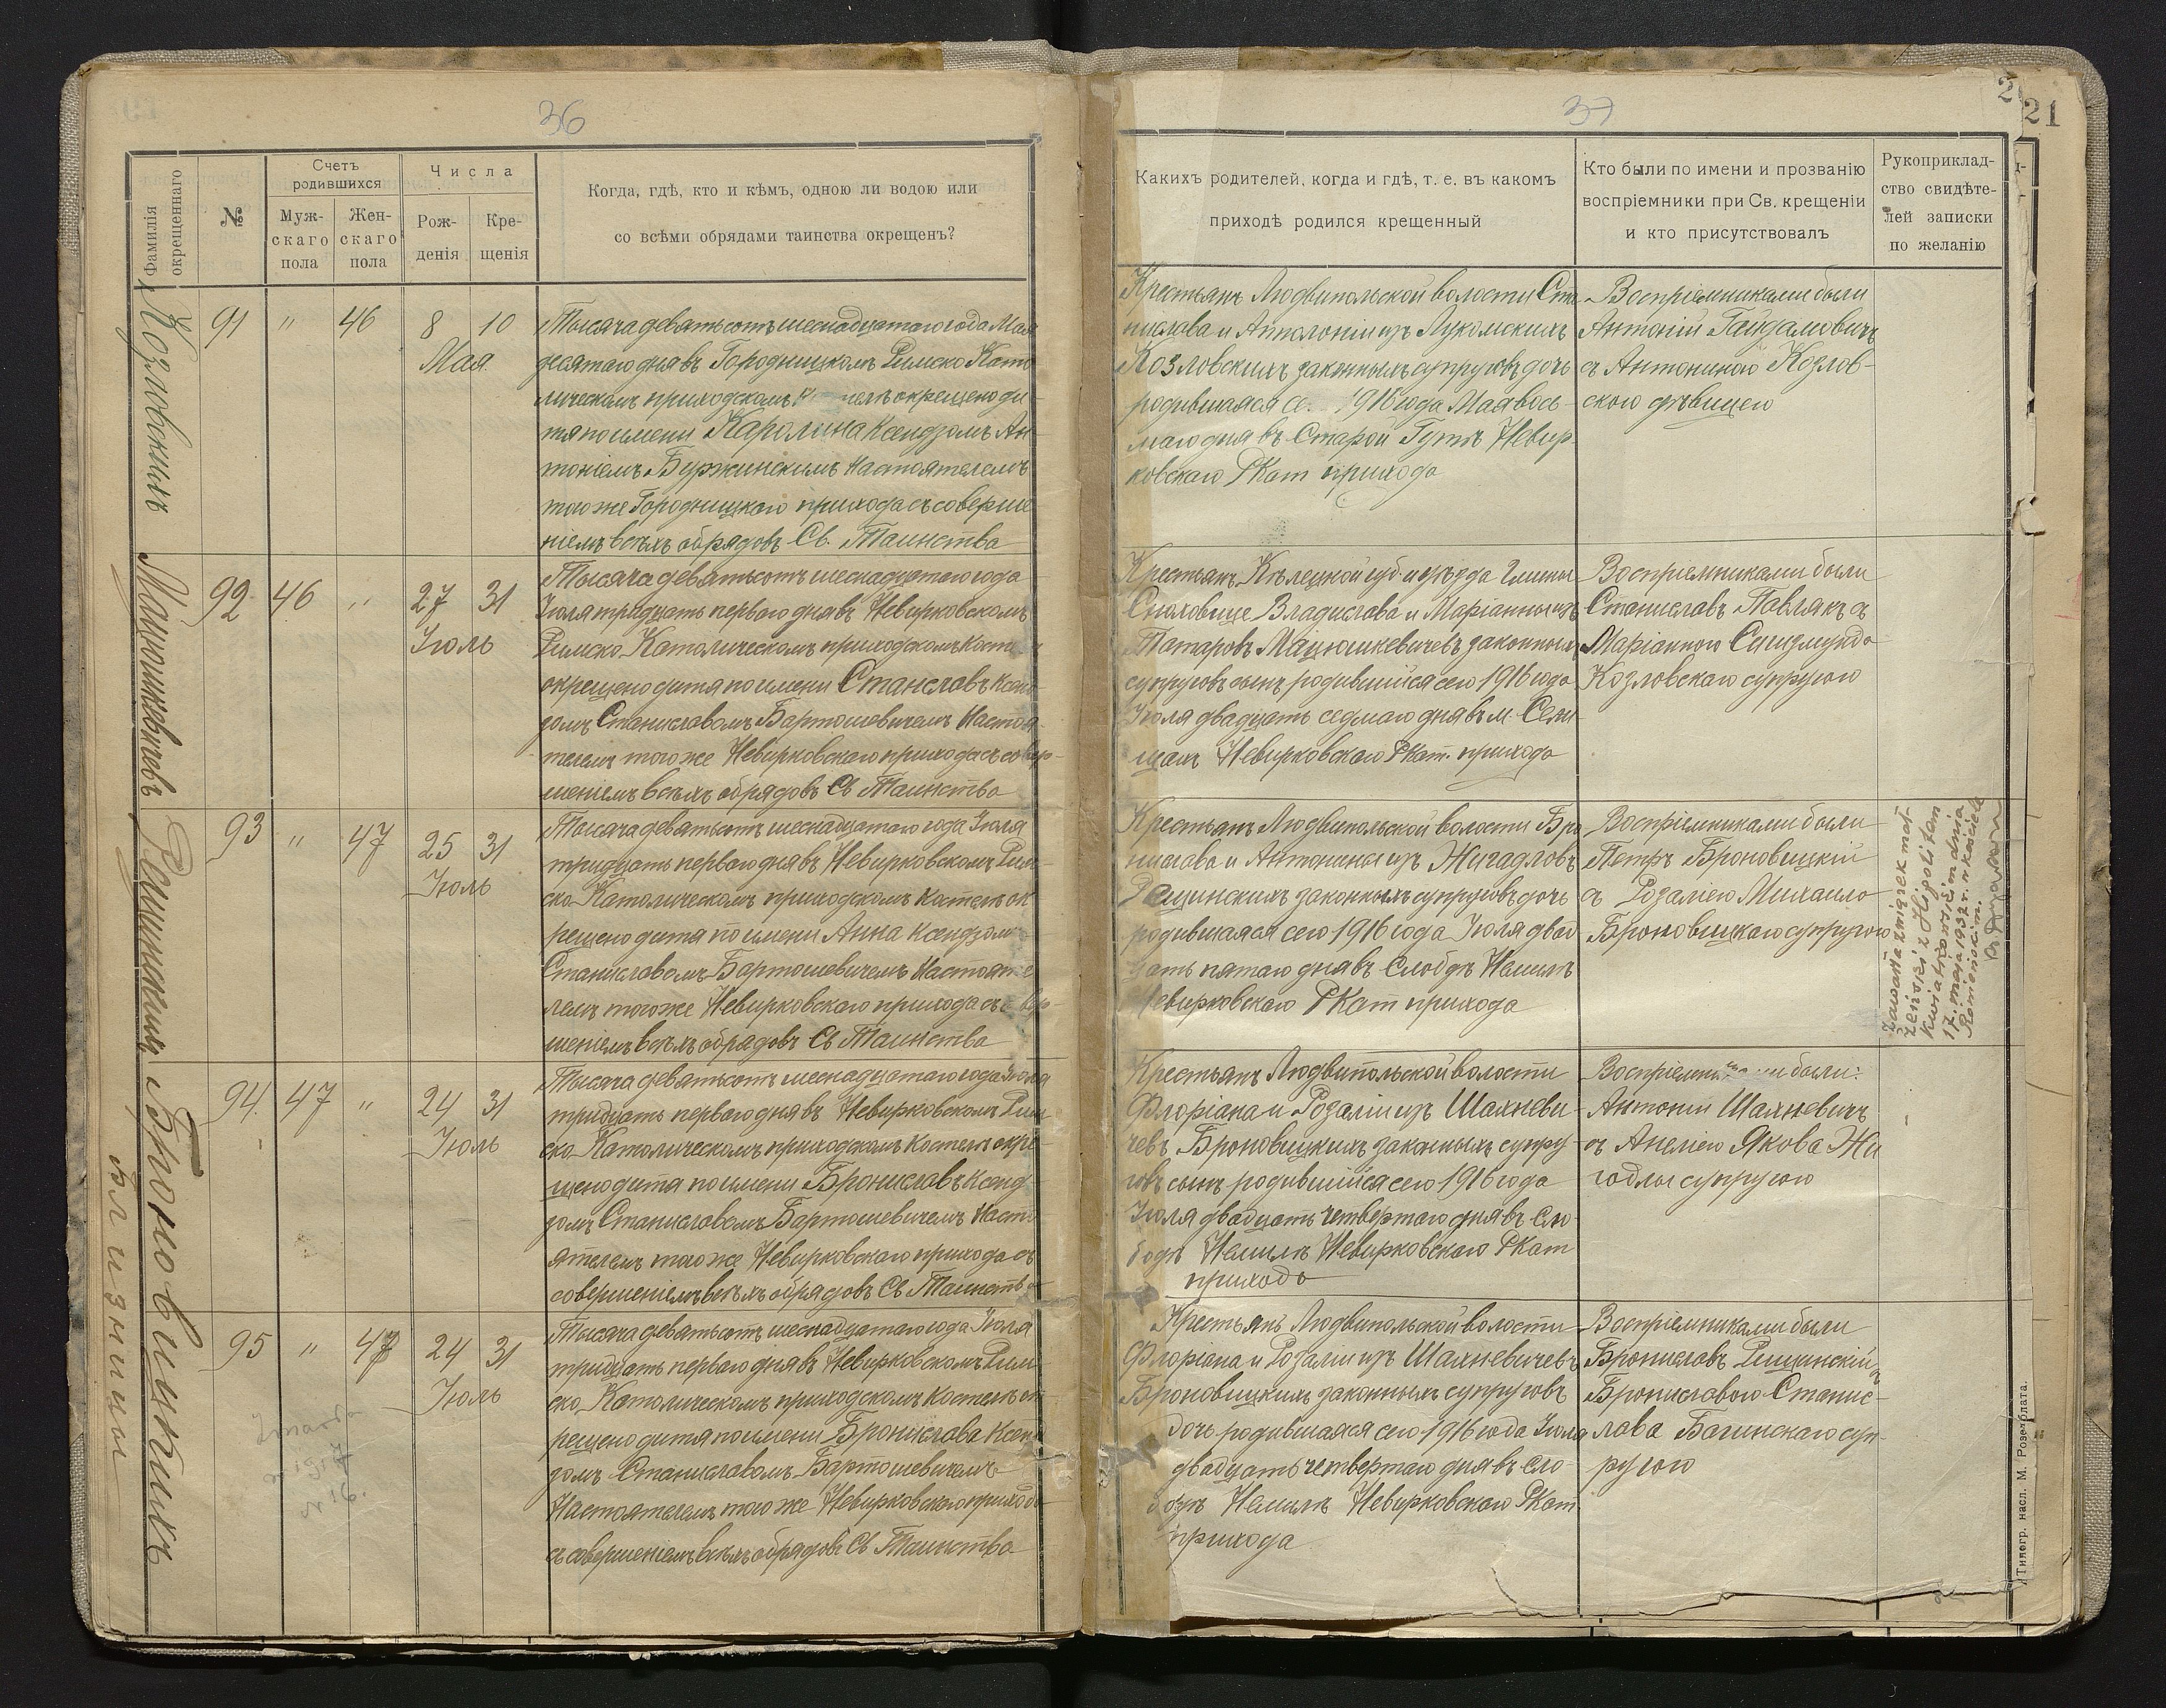 36
Фамилія
окрещеннаго
№
Счетъ
родившихся
Муж-
скаго
пола
Жен-
скаго
пола
Числа
Рож-
денія
Кре-
щенія
Когда, гдѣ, кто и кѣмъ, одною ли водою или
со всѣми обрядами таинства окрещенъ?
Козловскихъ
91 " 46 8 10
Мая
Тысяча девятьсотъ шеснадцатаго года Мая
десятаго дня въ Городницкомъ Римско Като
лическомъ приходскомъ окрещено ди-
тя по имени Каролина Ксендзомъ Ан-
тоніемъ Буржинскимъ Настоятелемъ
того же Городницкаго прихода съ соверше
ніемъ всѣхъ обрядовъ Св. Таинства
Мацюшкевичевъ
92 46 " 27 31
Іюль
Тысяча девятьсотъ шеснадцатого года
Іюля тридцать перваго дня въ Невирковскомъ
Римско Католическомъ приходскомъ
окрещено дитя по имени Станславъ Ксен-
дзомъ Станиславомъ Бартошевичемъ Настоя
телемъ того же Невирковскаго прихода съ совер-
шеніемъ всѣхъ обрядовъ Св Таинства
93 " 47 25 31
Іюль
Тысяча девятьсотъ шеснадцатаго года Іюля
тридцать перваго дня въ Невирковскомъ Рим-
ско Католическомъ приходскомъ костелѣ ок
рещено дитя по имени Анна Ксендзомъ
Станиславомъ Бартошевичемъ Настояте
лемъ того же Невирковскаго прихода съ
шеніемъ всѣхъ обрядовъ Св Таинства
Броновицкихъ
Близницы
94. 47 " 24 31
Іюль
Тысяча девятьсотъ шеснадцатаго года Іюля
тридцать перваго дня въ Невирковскомъ Рим
ско Католическомъ приходскомъ костелѣ окре
щено дитя по имени Брониславъ Ксенд
зомъ Станиславомъ Бартошевичемъ Насто
ятелемъ того же Невирковскаго прихода съ
совершеніемъ всѣхъ обрядовъ Св Таинства
95 " 47 24 31
Іюль
Тысяча девятьсотъ шеснадцатаго года Іюля
тридцать перваго дня въ Невирковскомъ Рим
ско Католическомъ приходскомъ костелѣ ок
рещено дитя по имени Бронислава Ксен
дзомъ Станиславомъ Бартошевичемъ
Настоятелемъ того же Невирковскаго прихода
съ совершеніемъ всѣхъ обрядовъ Св Таинства
Zmarła
1917
N 16.
37
21
Какихъ родителей, когда и гдѣ, т. е. въ какомъ
приходѣ родился крещенный
Кто были по имени и прозванію
воспріемники при Св. крещеніи
и кто присутствовалъ
Рукоприклад-
ство свидѣте-
лей записки
по желанію
Крестьянъ Людвипольской волости Ста
нислава и Апполоніи изъ Лукомскихъ
Козловскихъ законныхъ супруговъ дочь
родившаяся се. 1916 года Мая вось-
маго дня въ Старой Гутѣ Невир
ковскаго РКат прихода
Воспріемниками были
Антоній Гайдамовичъ
съ Антониною Козлов-
скою дѣвицею
Крестьянъ Кѣлецкой губ. и уѣзда Гмины
Владислава и Маріанны изъ
Татаровъ Мацюшкевичевъ законныхъ
супруговъ сынъ родившійся сего 1916 года
Іюля двадцать седмаго дня въ м. Сели-
щахъ Невирковскаго РКат. прихода
Воспріемниками были
Станиславъ Павлякъ съ
Маріанною Сигизмунда
Козловскаго супругою
Крестьянъ Людвипольской волости Бро
нислава и Антонины изъ Жигадловъ
законныхъ супруговъ дочь
родившаяся сего 1916 года Іюля двад
цать пятаго дня въ Слободѣ Немилѣ
Невирковскаго РКат прихода
Воспріемниками были
Петръ Броновицкій
съ Розаліею Михаила
Броновицкаго супругою
Zawarła związek mał-
żeński z Hipolitem
Kwiatkowskim dnia
17. maja 1937 r. w kościele
Крестьянъ Людвипольской волости
Флоріана и Розаліи изъ Шахневи-
чевъ Броновицкихъ законныхъ супру-
говъ сынъ родившійся сего 1916 года
Іюля двадцать четвертаго дня въ Сло-
бодѣ Немилѣ Невирковскаго РКат
прихода
были:
Антоній Шахневичъ
съ Анеліею Якова Жи
гадлы супругою
Крестьянъ Людвипольской волости
Флоріана и Розаліи изъ Шахневичевъ
Броновицкихъ законныхъ супруговъ
дочь родившаяся сего 1916 года Іюля
двадцать четвертаго дня въ Сло-
бодѣ Немилѣ Невирковскаго РКат.
прихода
Воспріемниками были
Брониславъ Рищинскій съ
Брониславою Станис-
лава Багинскаго суп-
ругою
Типогр. насл. М. Розенблата.